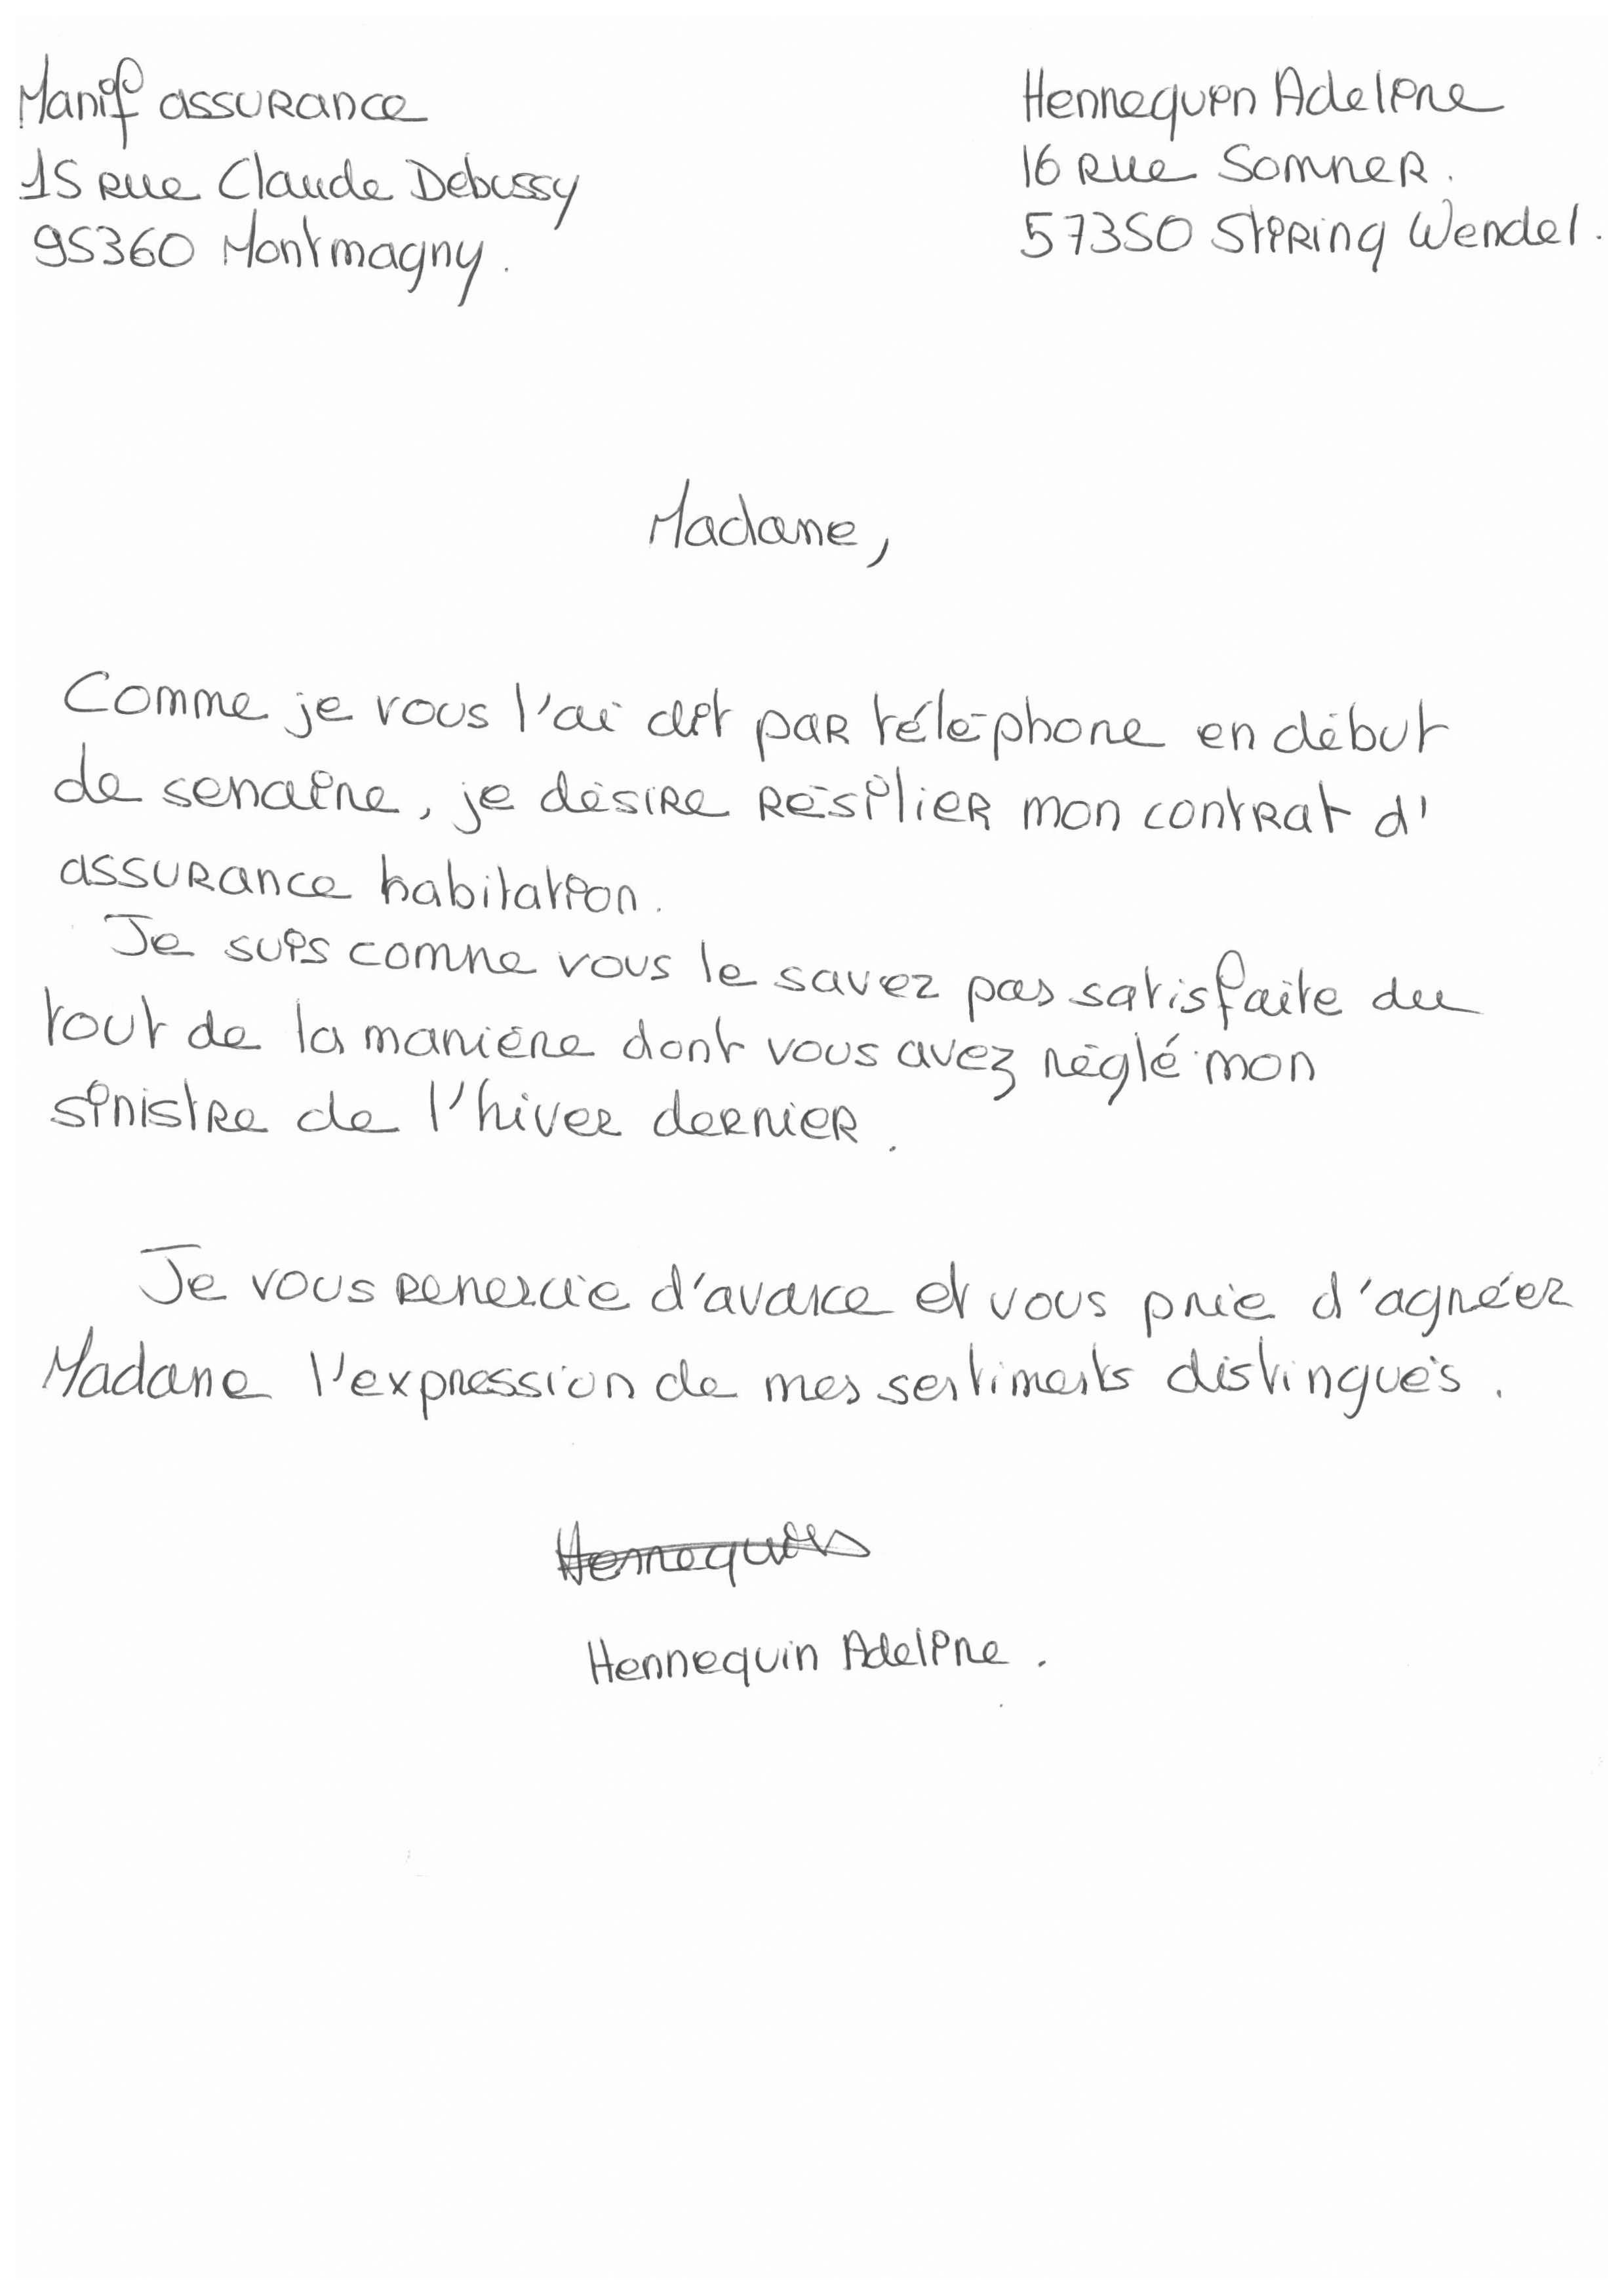 Manif assurance
15 rue Claude Debussy
95360 Montmagny.
Hennequin Adeline
16 rue Sommer.
57350 Stiring Wendel.
Madame,
Comme je vous l'ai dit par téléphone en début
de semaine, je désire résilier mon contrat d'
assurance habitation.
Je suis comme vous le savez pas satisfaite du
tout de la manière dont vous avez réglé mon
sinistre de l'hiver dernier.
Je vous remercie d'avance et vous prie d'agréer
Madame l'expression de mes sentiments distingués.
Hennequin Adeline.